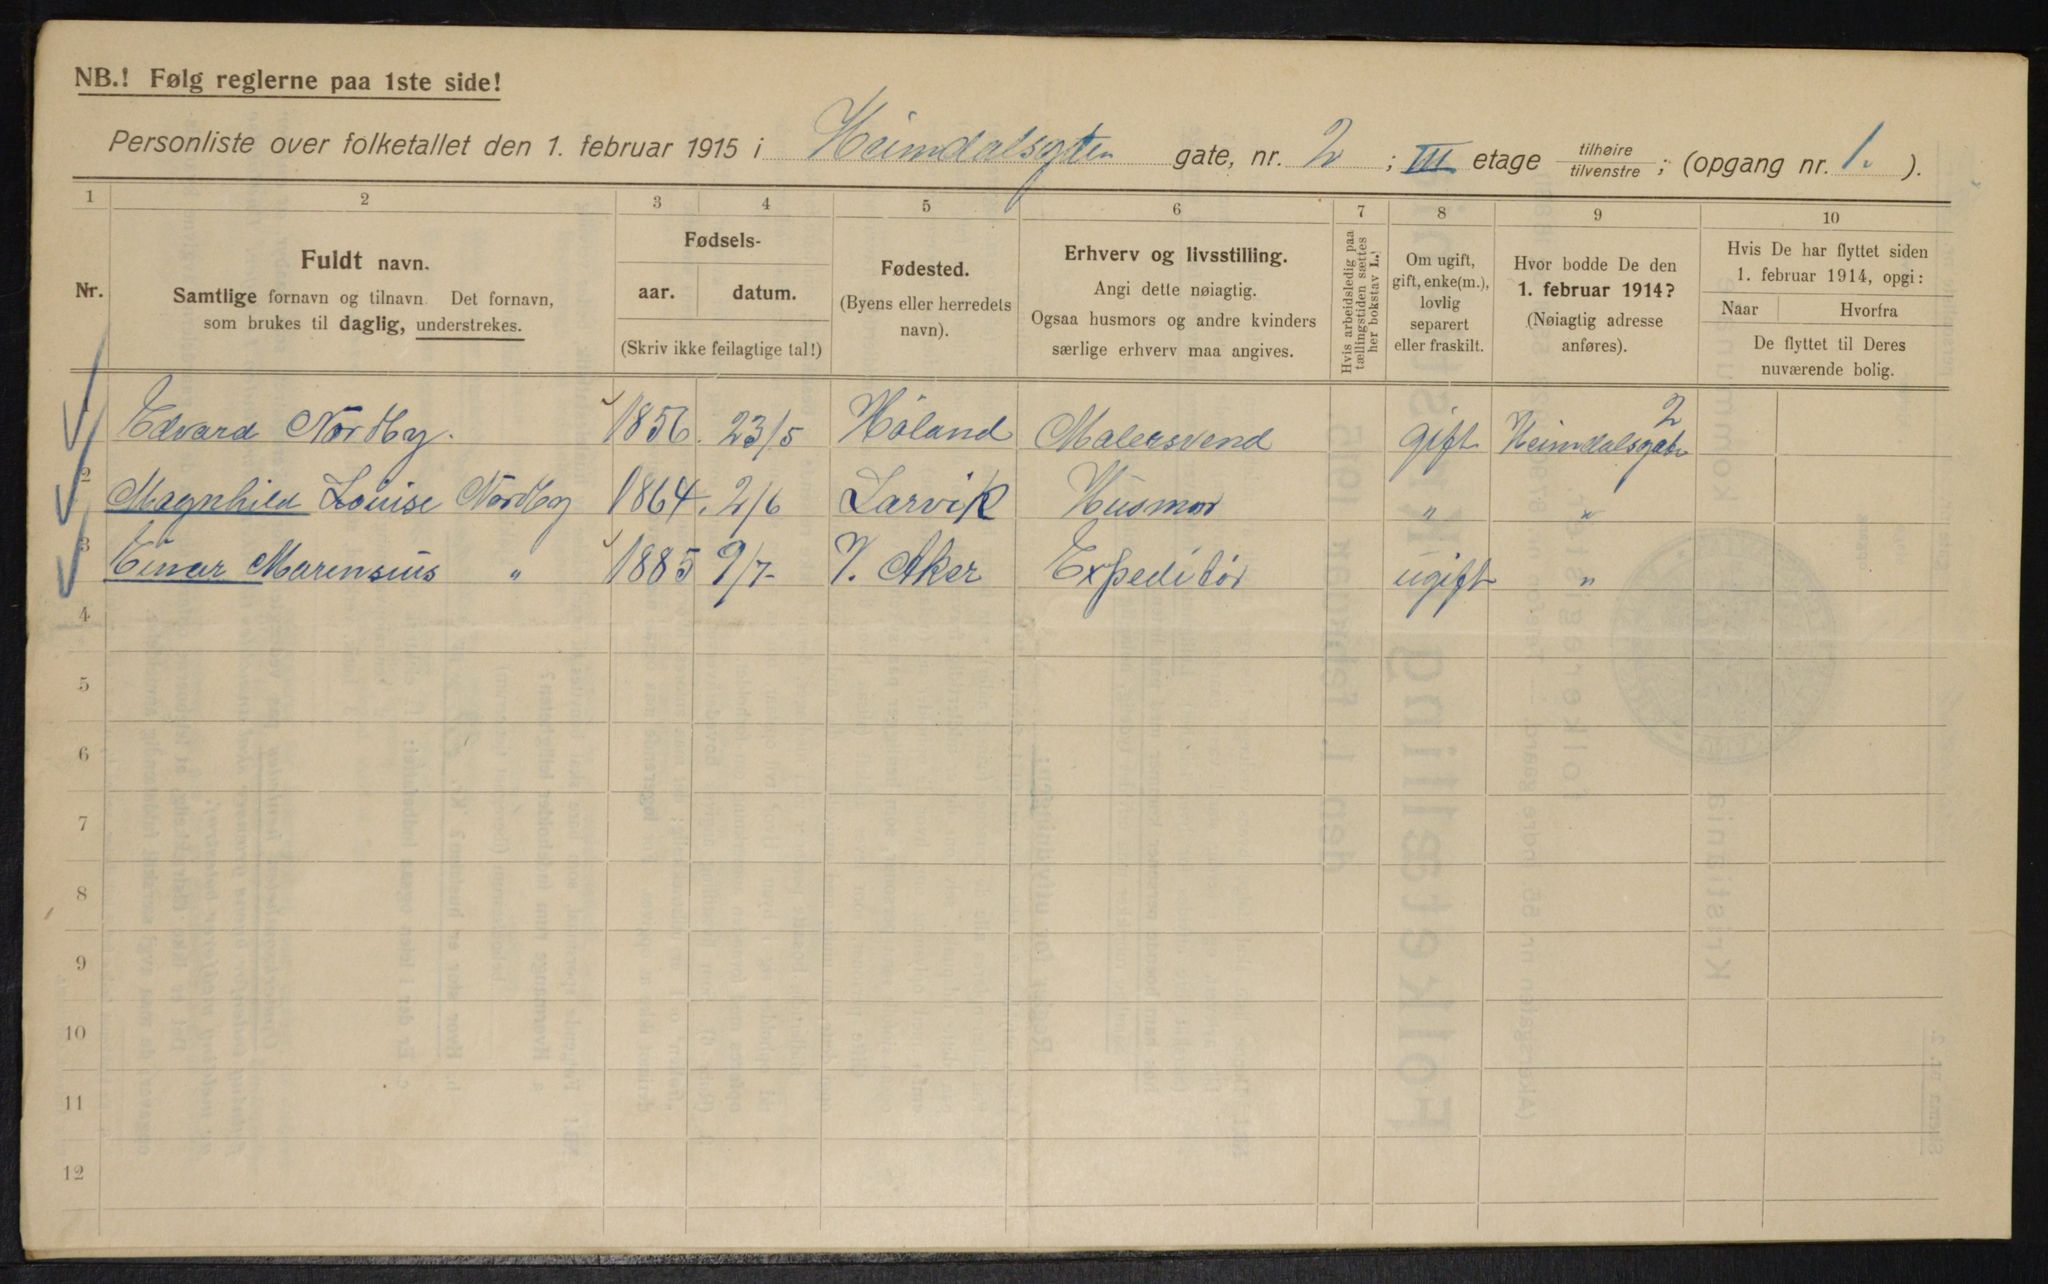 NB.! Følg reglerne paa 1ste side!
Personliste over folketallet den 1. februar 1915 i Heimdalsgten gate, nr. 2 ; III etage tilhøire tilvenstre ; (opgang nr. 1. ).
1 2 3 4 5 6 7 8 9 10
Nr.
Fuldt navn.
Samtlige fornavn og tilnavn. Det fornavn,
som brukes til daglig, understrekes.
Fødsels-
aar. datum.
(Skriv ikke feilagtige tal!)
Fødested.
(Byens eller herredets
navn).
Erhverv og livsstilling.
Angi dette nøiagtig.
Ogsaa husmors og andre kvinders
særlige erhverv maa angives.
Hvis arbeidsledig paa
tællingstiden sættes
her bokstav L.!
Om ugift,
gift, enke(m.),
lovlig
separert
eller fraskilt.
Hvor bodde De den
1. februar 1914?
(Nøiagtig adresse
anføres).
Hvis De har flyttet siden
1. februar 1914, opgi:
Naar Hvorfra
De flyttet til Deres
nuværende bolig.
1 Edvard Nordby. 1856. 23/5 Høland Malersvend gift Heimdalsgate 2
2 Magnhild Louise Nordby 1864. 2/6 Larvik Husmor " "
3 Einar Marensius " 1885 9/7- V. Aker Expeditør ugift "
4
5
6
7
8
9
10
11
12